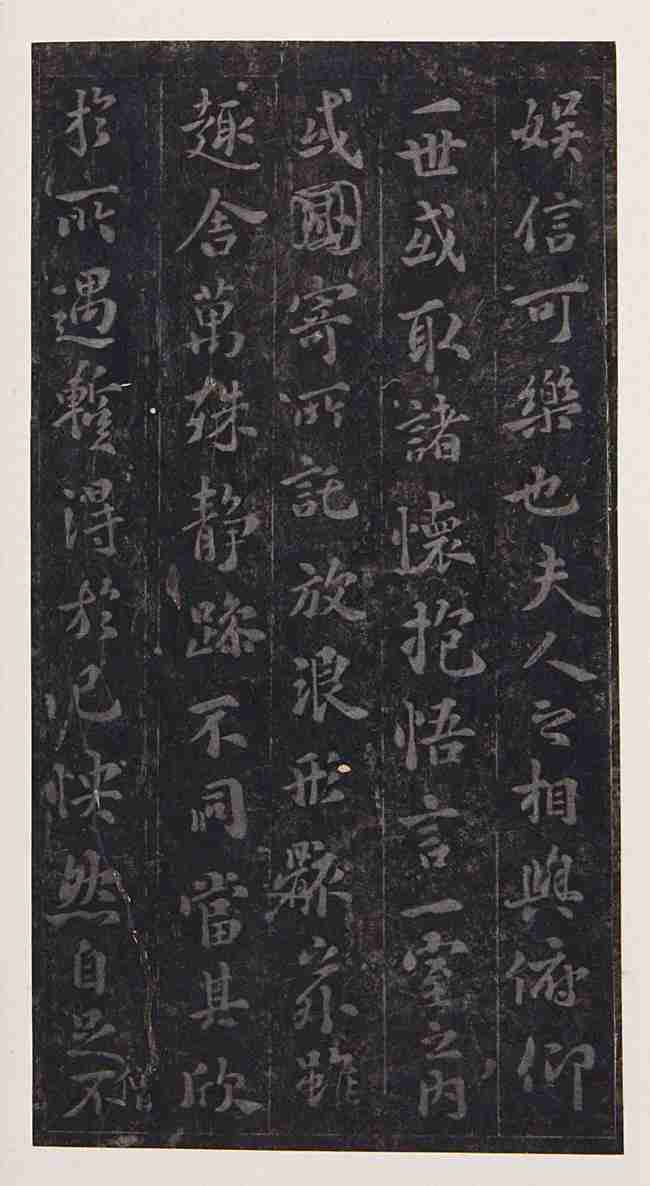 娛信可樂也夫人之相與俯仰
一世或取諸懷抱悟言一室之內
或因寄所託放浪形骸之外雖
趣舍萬殊靜躁不同當其欣
於所遇暫得於己怏然自足不
僧